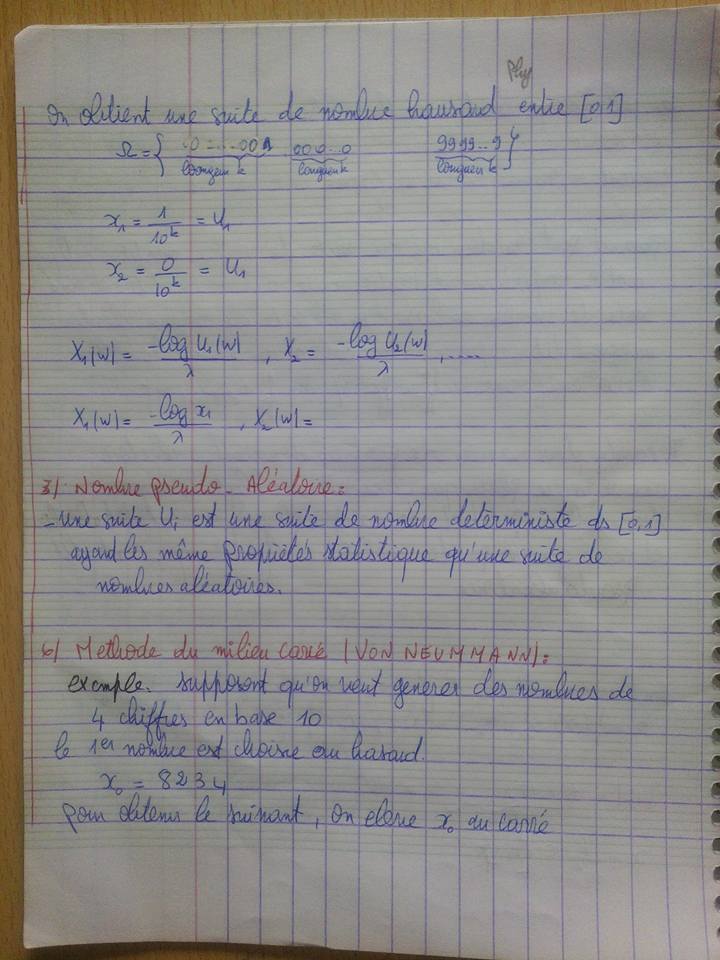 Phy
On obtient une suite de nombre hausard entre [0,1]
Ω = { 0....001 000..0 9999..9 }
longeur k longueur k longueur k
x₁ = 1/10^k = U₁
x₂ = 0/10^k = U₁
X₁(w) = -log U₁(w)/λ , X₂ = -log U₂(w)/λ , ....
X₁(w) = -log x₁/λ , X₂(w) =
3) Nombre pseudo - Aléatoire :
- une suite Ui est une suite de nombre deterministe ds [0,1]
ayant les même propriétés statistique qu'une suite de
nombres aléatoires.
6) Methode du milieu carré (VON NEUMMANN) :
exemple. supposont qu'on veut generer des nombres de
4 chiffres en base 10
le 1er nombre est choisie au hasard.
x₀ = 8234
pour obtenir le suivant, on eleve x₀ au carré